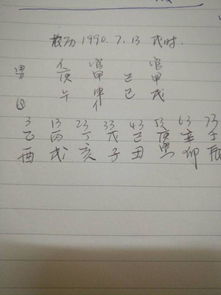 农历1990.7.13 戌时.
官 官
庚 甲 己 甲
午 申 巳 戌
3 13 23 33 43 53 63 73
乙 丙 丁 戊 己 庚 辛 壬
酉 戌 亥 子 丑 寅 卯 辰